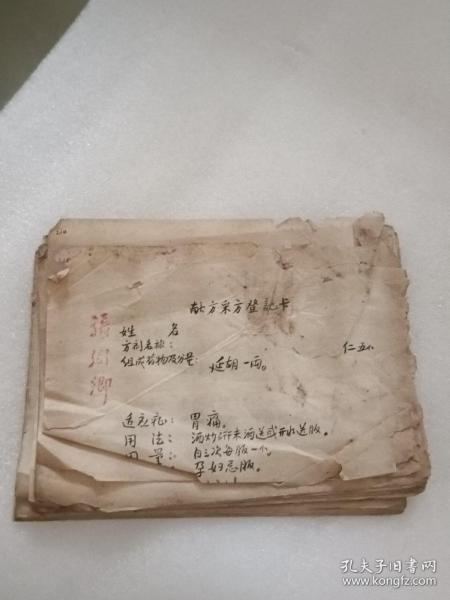 献方采方登記卡
姓 名
方剂名称:
组成药物及分量: 延胡一両。
适应症: 胃痛。
用 法: 酒炒研末酒送或开水送服。
用 量: 日三次每服一
孕妇忌服。
孔夫子旧书网
www.kongfz.com